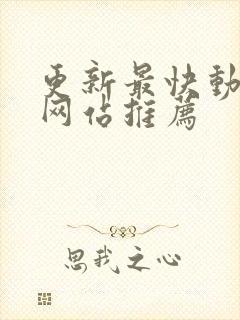 更新最快動
网站推薦
思我之心